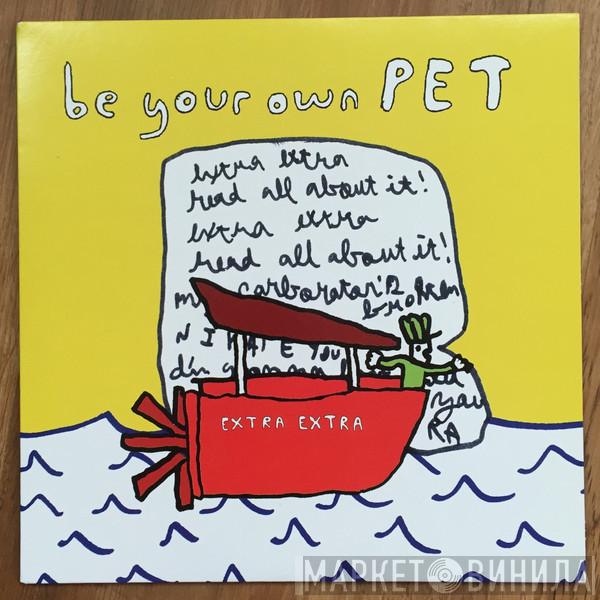 be your own PET
extra extra
read all about it!
extra extra
read all about it!
carborator's
broken
I HATE YOU
EXTRA EXTRA
you
МАРКЕТ ВИНИЛА